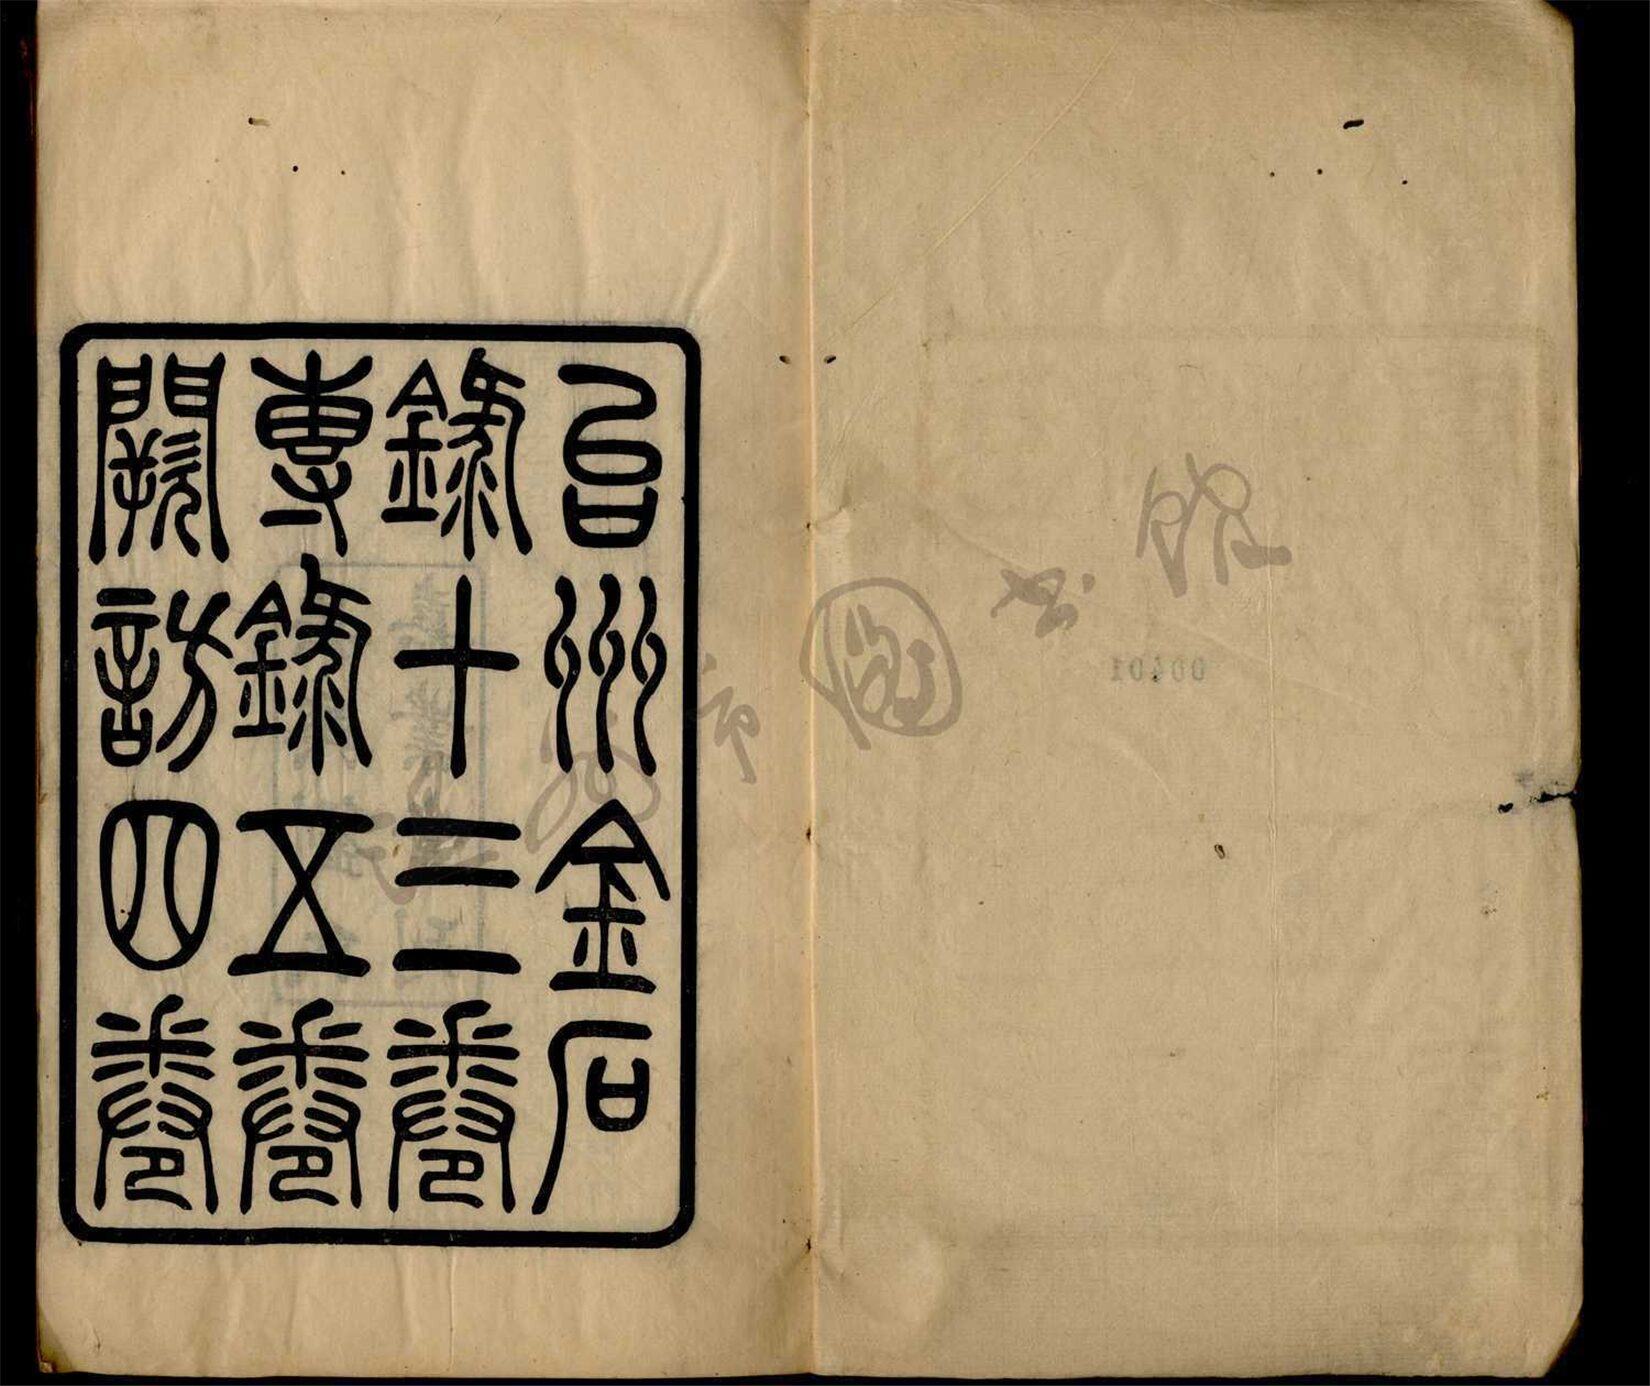 台州金石
錄十三卷
專錄五卷
闕訪四卷
00401